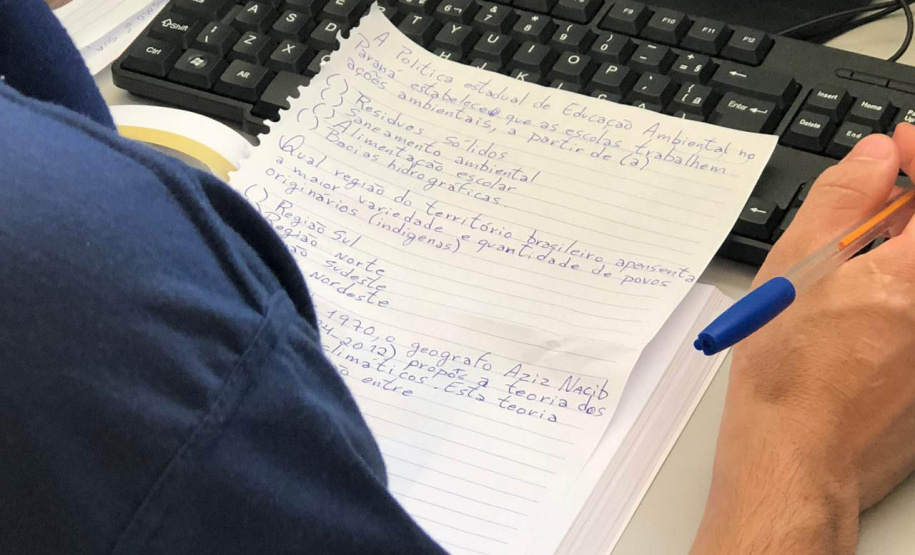 A Política estadual de Educação Ambiental no
Paraná estabeleceu que as escolas trabalhem
ações ambientais, a partir de (a)
( ) Resíduos sólidos
( ) Saneamento ambiental
( ) Alimentação escolar
Bacias hidrográficas.
Qual região do território brasileiro apensenta
a maior variedade e quantidade de povos
originários (indígenas)
( ) Região Sul
Região Norte
Sudeste
Nordeste
1970, o geografo Aziz Nacib
-2012) propôs a teoria dos
climáticos. Esta teoria
entre
Shift
Ctrl
Alt
A
S
D
Z
X
E
R
T
Y
U
I
O
P
H
J
K
L
6
7
8
9
0
F9
F10
F11
F12
Enter
Insert
Home
Delete
End